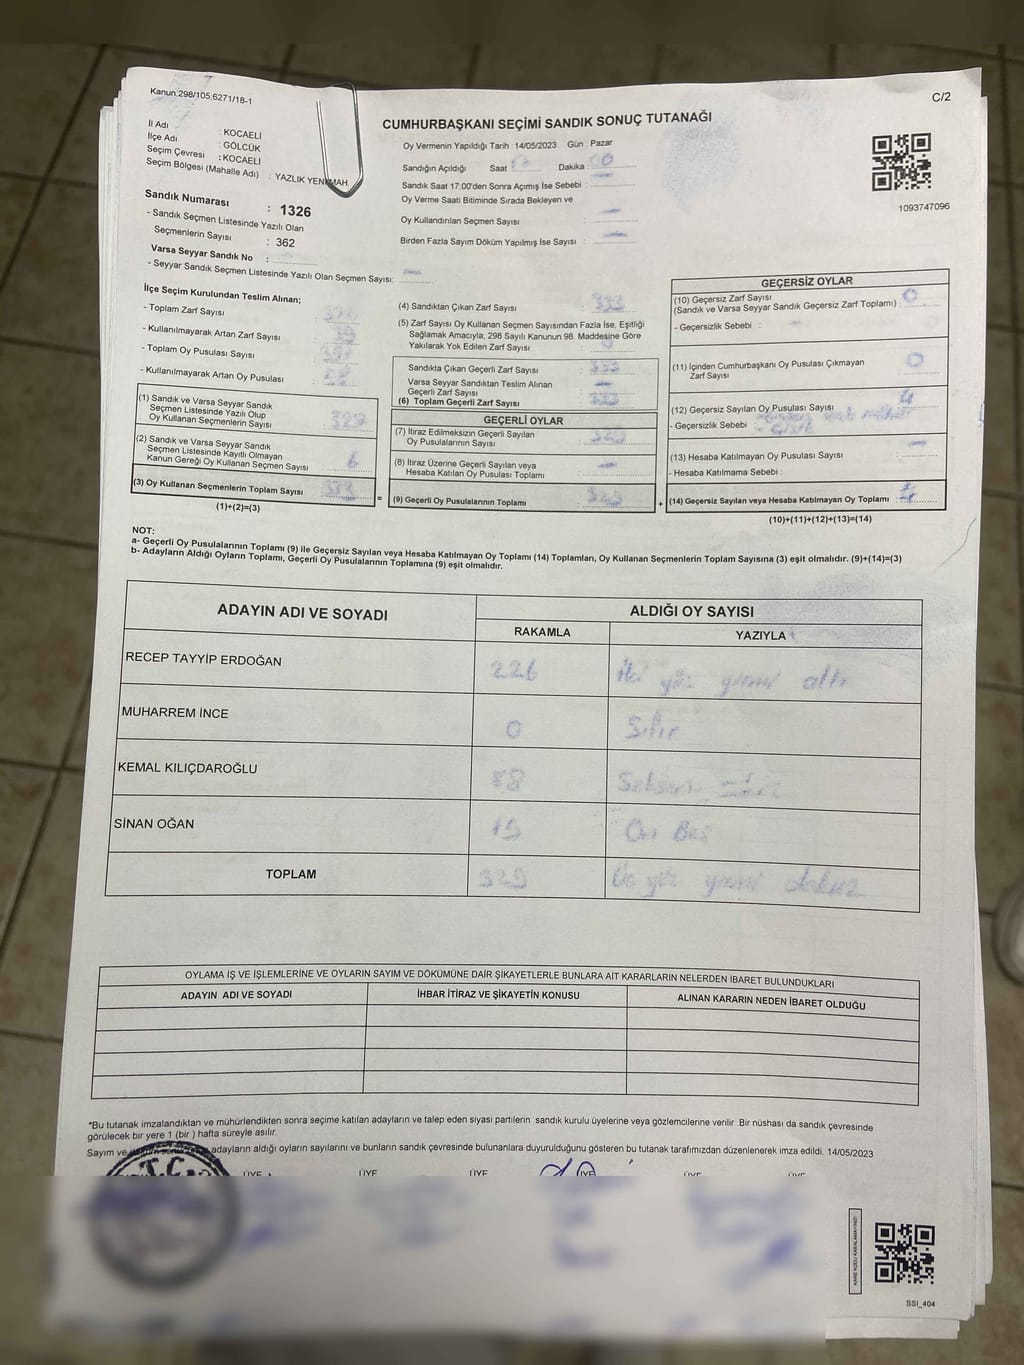 Kanun.298/105.6271/18-1
C/2
CUMHURBAŞKANI SEÇİMİ SANDIK SONUÇ TUTANAĞI
İl Adı : KOCAELİ
İlçe Adı : GÖLCÜK
Seçim Çevresi : KOCAELİ
Seçim Bölgesi (Mahalle Adı) : YAZLIK YENİMAH.
Sandık Numarası : 1326
- Sandık Seçmen Listesinde Yazılı Olan
Seçmenlerin Sayısı : 362
Varsa Seyyar Sandık No :
- Seyyar Sandık Seçmen Listesinde Yazılı Olan Seçmen Sayısı:
Oy Vermenin Yapıldığı Tarih : 14/05/2023 Gün : Pazar
Sandığın Açıldığı Saat Dakika : 00
Sandık Saat 17:00'den Sonra Açımış İse Sebebi :
Oy Verme Saati Bitiminde Sırada Bekleyen ve
Oy Kullandırılan Seçmen Sayısı :
Birden Fazla Sayım Döküm Yapılmış İse Sayısı :
1093747096
İlçe Seçim Kurulundan Teslim Alınan;
- Toplam Zarf Sayısı :
- Kullanılmayarak Artan Zarf Sayısı :
- Toplam Oy Pusulası Sayısı :
- Kullanılmayarak Artan Oy Pusulası :
(1) Sandık ve Varsa Seyyar Sandık
Seçmen Listesinde Yazılı Olup
Oy Kullanan Seçmenlerin Sayısı :
(2) Sandık ve Varsa Seyyar Sandık
Seçmen Listesinde Kayıtlı Olmayan
Kanun Gereği Oy Kullanan Seçmen Sayısı : 6
(3) Oy Kullanan Seçmenlerin Toplam Sayısı : 333
(1)+(2)=(3)
(4) Sandıktan Çıkan Zarf Sayısı : 333
(5) Zarf Sayısı Oy Kullanan Seçmen Sayısından Fazla İse, Eşitliği
Sağlamak Amacıyla; 298 Sayılı Kanunun 98. Maddesine Göre
Yakılarak Yok Edilen Zarf Sayısı :
Sandıkta Çıkan Geçerli Zarf Sayısı : 333
Varsa Seyyar Sandıktan Teslim Alınan
Geçerli Zarf Sayısı :
(6) Toplam Geçerli Zarf Sayısı : 333
GEÇERLİ OYLAR
(7) İtiraz Edilmeksizin Geçerli Sayılan
Oy Pusulalarının Sayısı : 329
(8) İtiraz Üzerine Geçerli Sayılan veya
Hesaba Katılan Oy Pusulası Toplamı :
(9) Geçerli Oy Pusulalarının Toplamı : 329
GEÇERSİZ OYLAR
(10) Geçersiz Zarf Sayısı : 0
(Sandık ve Varsa Seyyar Sandık Geçersiz Zarf Toplamı)
- Geçersizlik Sebebi :
(11) İçinden Cumhurbaşkanı Oy Pusulası Çıkmayan
Zarf Sayısı : 0
(12) Geçersiz Sayılan Oy Pusulası Sayısı : 4
- Geçersizlik Sebebi :
(13) Hesaba Katılmayan Oy Pusulası Sayısı :
- Hesaba Katılmama Sebebi :
(14) Geçersiz Sayılan veya Hesaba Katılmayan Oy Toplamı : 4
(10)+(11)+(12)+(13)=(14)
NOT:
a- Geçerli Oy Pusulalarının Toplamı (9) ile Geçersiz Sayılan veya Hesaba Katılmayan Oy Toplamı (14) Toplamları, Oy Kullanan Seçmenlerin Toplam Sayısına (3) eşit olmalıdır. (9)+(14)=(3)
b- Adayların Aldığı Oyların Toplamı, Geçerli Oy Pusulalarının Toplamına (9) eşit olmalıdır.
ADAYIN ADI VE SOYADI ALDIĞI OY SAYISI
RAKAMLA YAZIYLA
RECEP TAYYİP ERDOĞAN 226 İki yüz yirmi altı
MUHARREM İNCE 0 Sıfır
KEMAL KILIÇDAROĞLU 88 Seksen sekiz
SİNAN OĞAN 15 On Beş
TOPLAM 329 Üç yüz yirmi dokuz
OYLAMA İŞ VE İŞLEMLERİNE VE OYLARIN SAYIM VE DÖKÜMÜNE DAİR ŞİKAYETLERLE BUNLARA AİT KARARLARIN NELERDEN İBARET BULUNDUKLARI
ADAYIN ADI VE SOYADI İHBAR İTİRAZ VE ŞİKAYETİN KONUSU ALINAN KARARIN NEDEN İBARET OLDUĞU
*Bu tutanak imzalandıktan ve mühürlendikten sonra seçime katılan adayların ve talep eden siyasi partilerin sandık kurulu üyelerine veya gözlemcilerine verilir. Bir nüshası da sandık çevresinde
görülecek bir yere 1 (bir) hafta süreyle asılır.
Sayım ve adayların aldığı oyların sayılarını ve bunların sandık çevresinde bulunanlara duyurulduğunu gösteren bu tutanak tarafımızdan düzenlenerek imza edildi. 14/05/2023
T.C.
ÜYE ÜYE ÜYE ÜYE ÜYE ÜYE
SSI_404